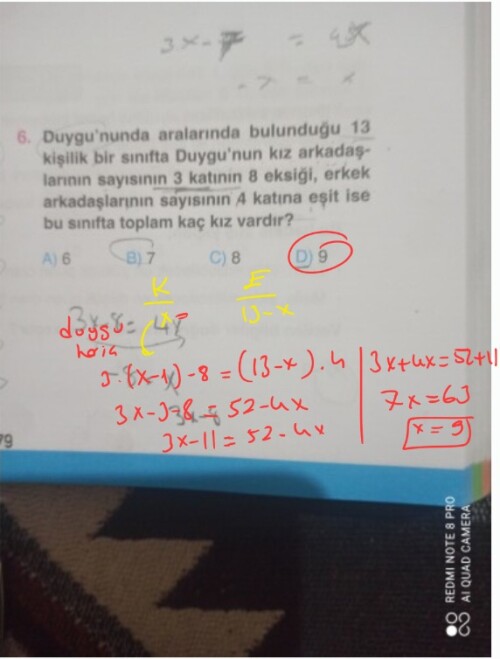 3x- = 4
- > = x
6. Duygu'nunda aralarında bulunduğu 13
kişilik bir sınıfta Duygu'nun kız arkadaş-
larının sayısının 3 katının 8 eksiği, erkek
arkadaşlarının sayısının 4 katına eşit ise
bu sınıfta toplam kaç kız vardır?
A) 6 B) 7 C) 8 D) 9
K E
x 13-x
3x-8=
duygu
hariç
3.(x-1)-8=(13-x).4
3x-3-8=52-4x
3x-11=52-4x
3x+4x=52+11
7x=63
x=9
79
REDMI NOTE 8 PRO
AI QUAD CAMERA